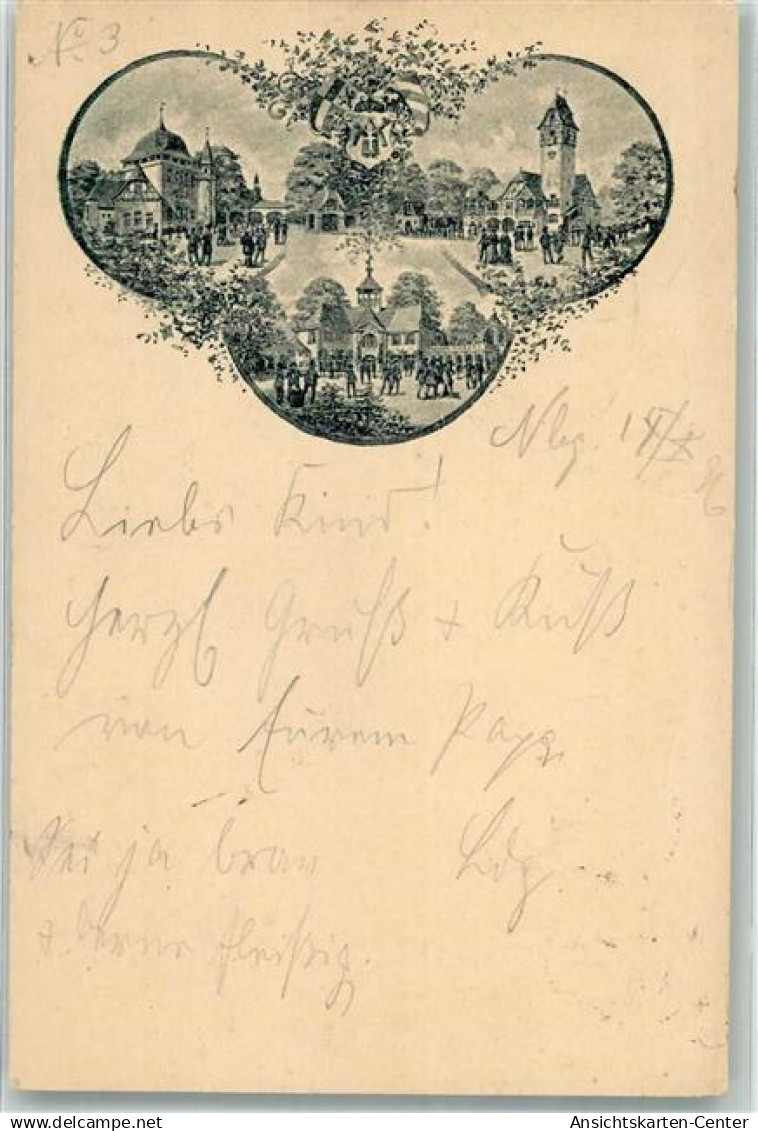 No 3
Nbg. 18/X
96
Liebs Kind!
Herzl Gruß + Kuß
von Eurem Papa
Sei ja brav Ldg.
+ lerne fleißig.
delcampe.net
Ansichtskarten-Center